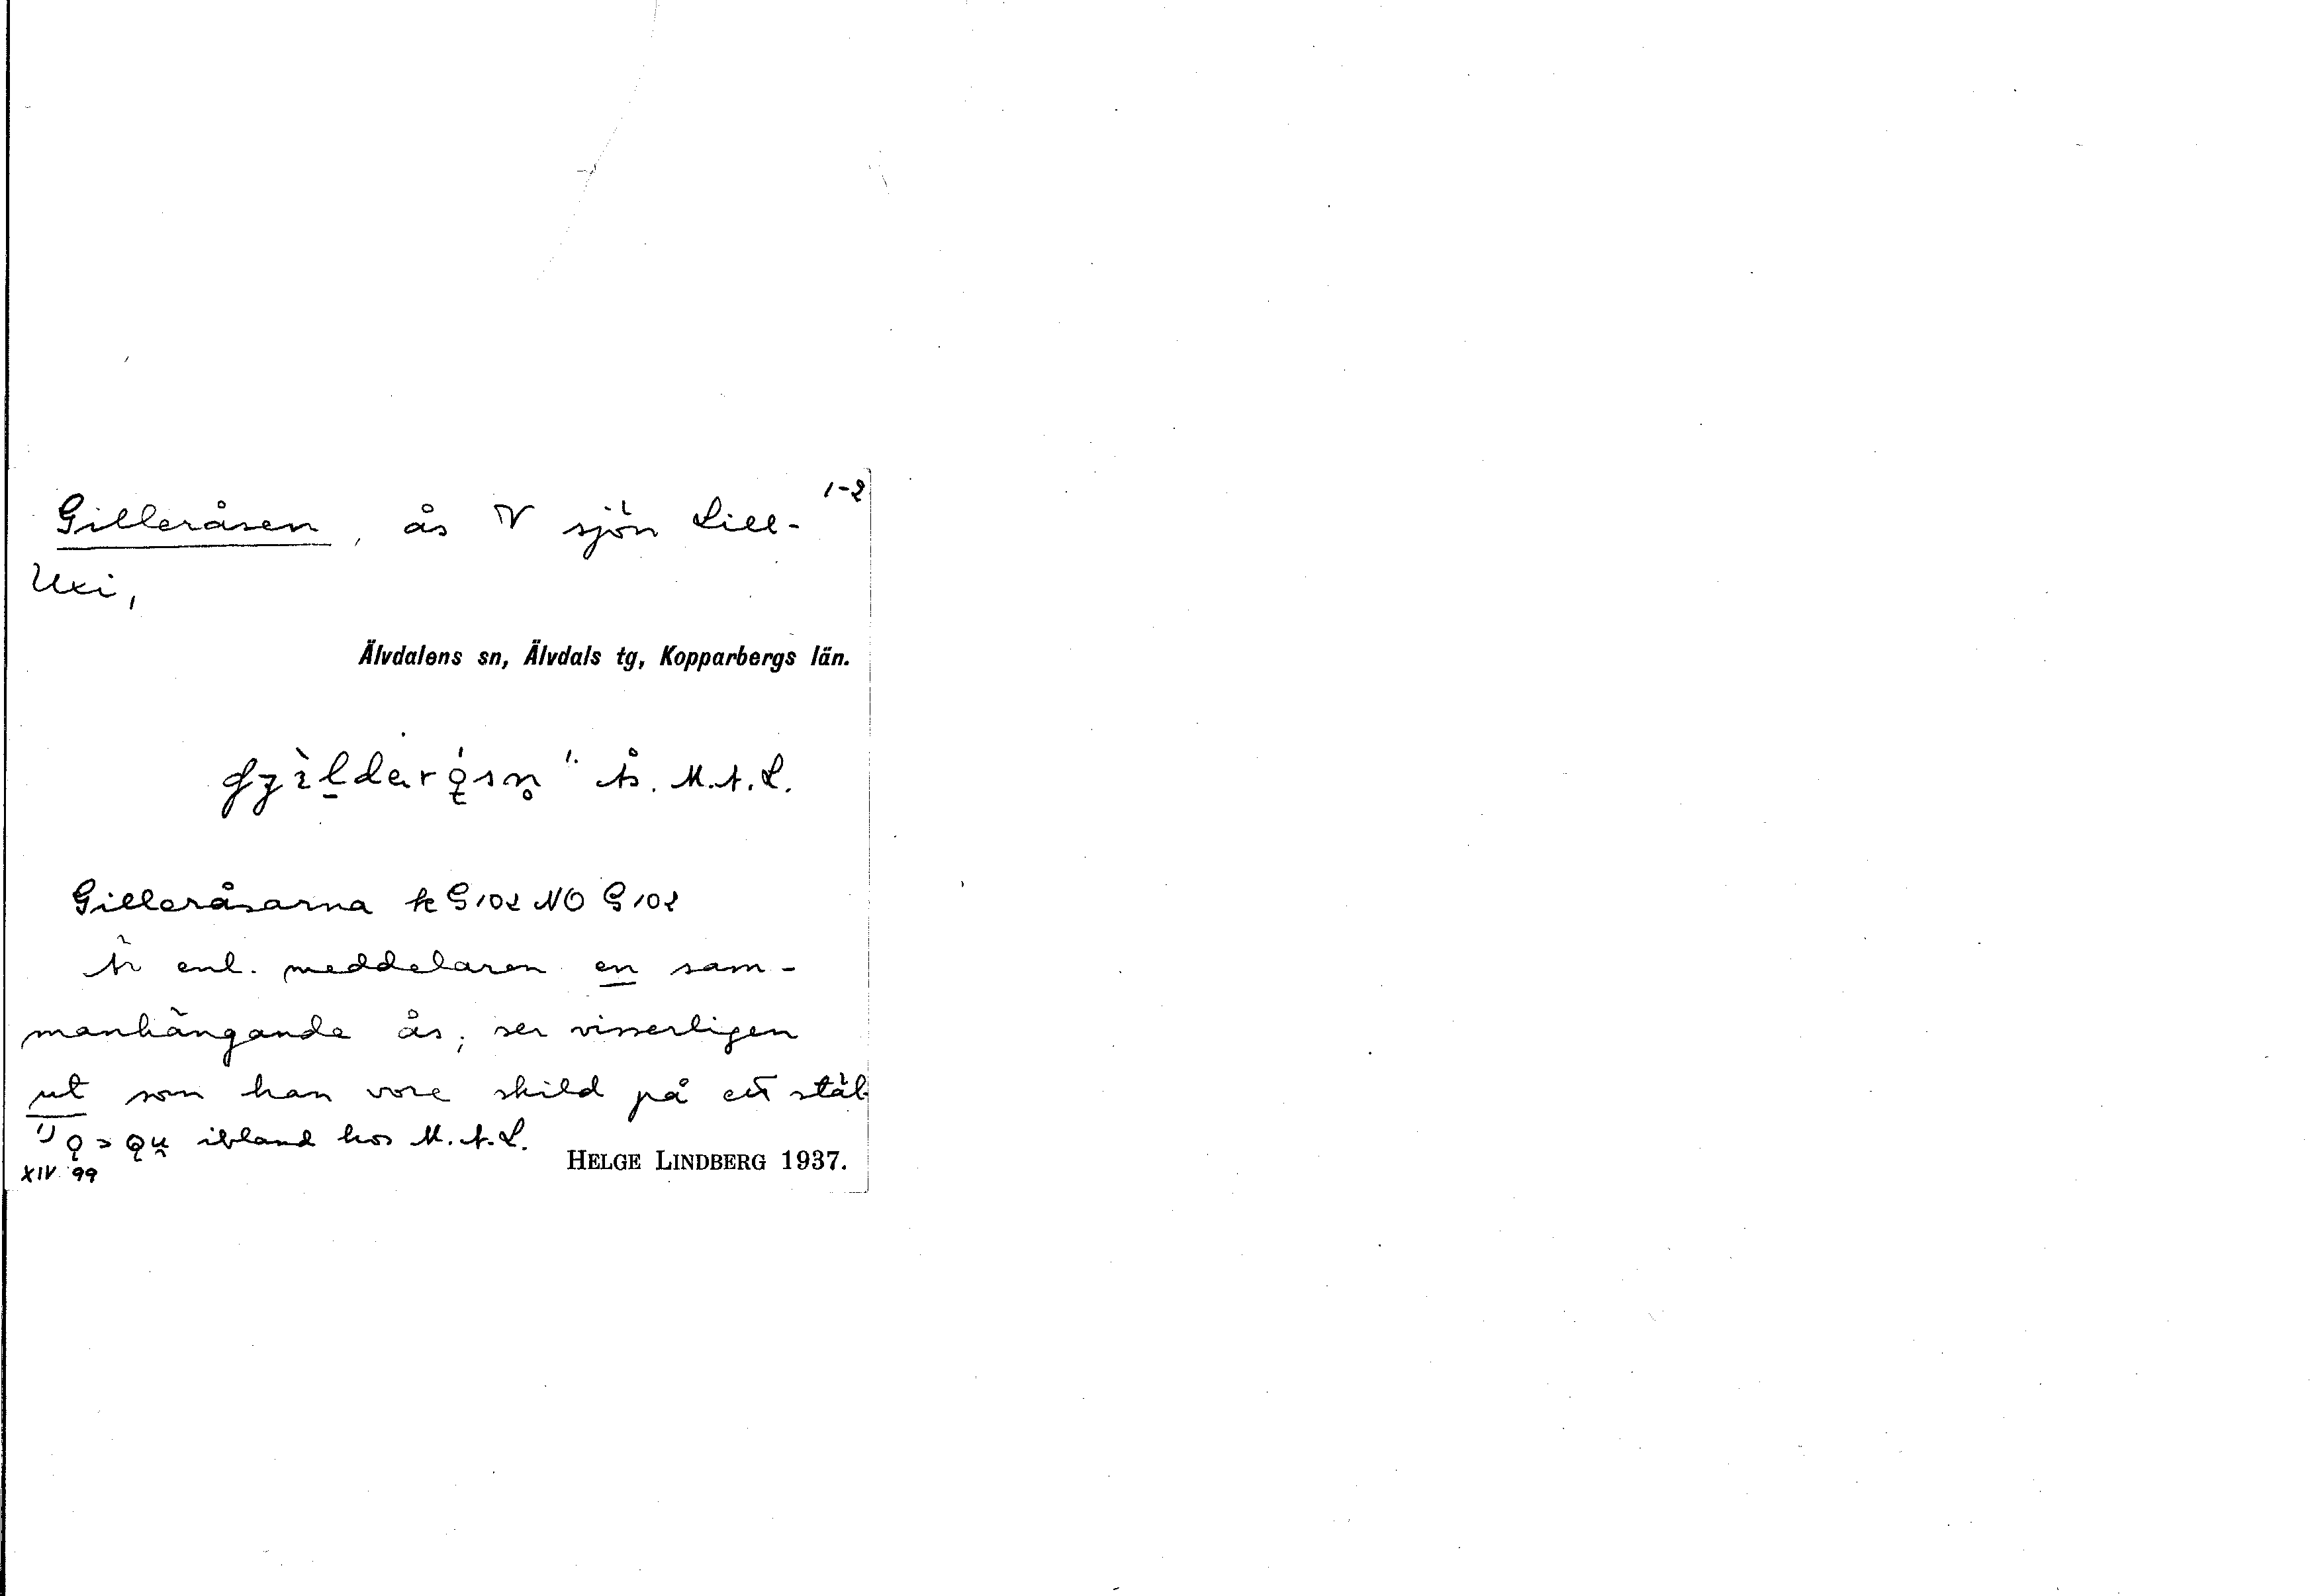 1-2
Gilleråsen, ås V sjön Lill-
Uxi,
Älvdalens sn, Älvdals tg, Kopparbergs län.
Ås. M.A.L.
Gilleråsarna k G102 NO G102
Är enl. meddelaren en sam-
manhängande ås; ser visserligen
ut som han vore skild på ett ställ
ibland hos M.A.L.
XIV 99
HELGE LINDBERG 1937.